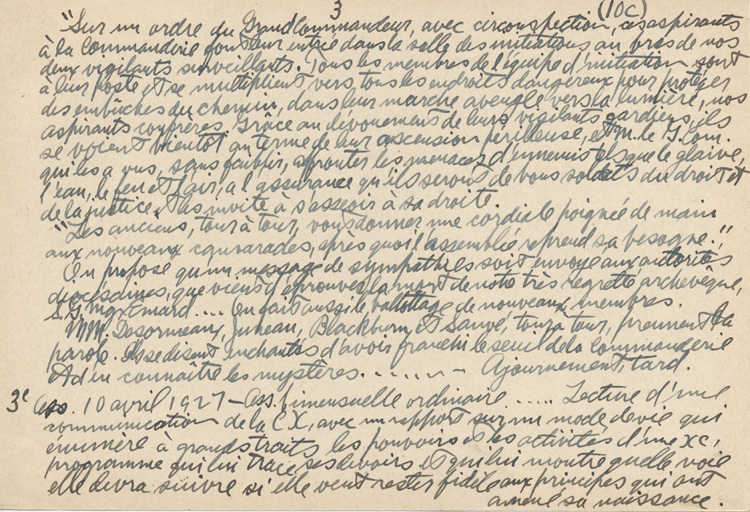 3 (10c)
"Sur un ordre du Grand Commandeur, avec circonspection, les aspirants
à la Commanderie font leur entrée dans la salle des initiations au bras de nos
deux vigilants surveillants. Tous les membres de l'équipe d'initiation sont
à leur poste et se multiplient vers tous les endroits dangereux pour protéger
des embûches du chemin, dans leur marche aveugle vers la lumière, nos
aspirants confrères. Grâce au dévouement de leurs vigilants gardiens, ils
se voient bientôt au terme de leur ascension périlleuse, et M. le G. Com.
qui les a vus, sans faiblir, affronter les menaces d'ennemis tels que le glaive,
l'eau, le feu et l'air, a l'assurance qu'ils seront de vrais soldats du droit et
de la justice. Il les invite à s'asseoir à sa droite.
"Les anciens, tour à tour, vont donner une cordiale poignée de main
aux nouveaux camarades, après quoi l'assemblée reprend sa besogne."
On propose qu'un message de sympathies soit envoyé aux autorités
diocésaines, que vient d'éprouver la mort de notre très regretté archevêque,
S. G. Mgr Emard.... On fait aussi le ballottage de nouveaux membres.
MM. Desormeaux, Juneau, Blackburn, et Sauvé, tour à tour, prennent la
parole. Ils se disent enchantés d'avoir franchi le seuil de la Commanderie
et d'en connaître les mystères....... Ajournement, tard.
3e Ass. 10 avril 1927 - Ass. bimensuelle ordinaire ..... Lecture d'une
communication de la CX, avec un rapport sur un mode de vie qui
énumère à grands traits les pouvoirs et les activités d'une XC,
programme qui lui trace ses devoirs et qui lui montre quelle voie
elle devra suivre si elle veut rester fidèle aux principes qui ont
amené sa naissance.